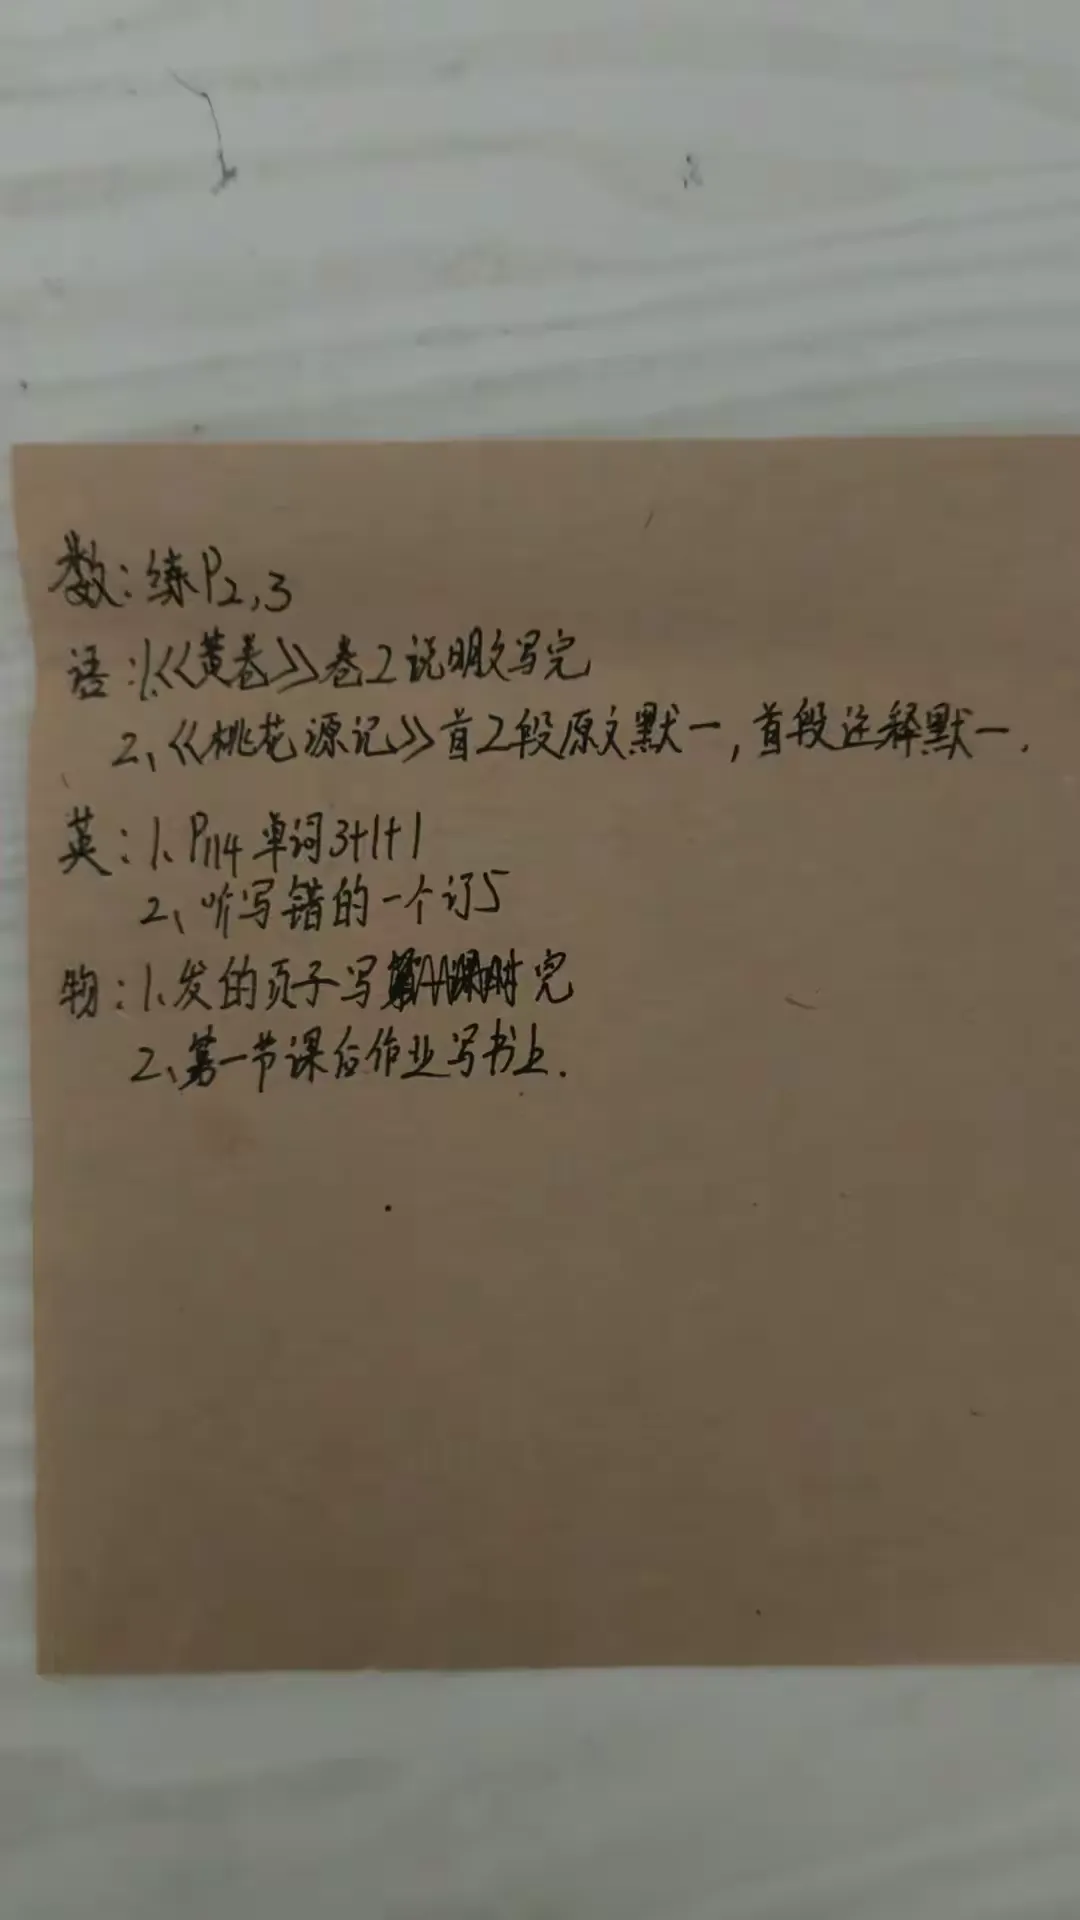 数:练P2,3
语:1.《黄卷》卷2说明文写完
2、《桃花源记》首2段原文默一,首段注释默一.
英:1、P114单词3+1+1
2、听写错的一个订5
物:1.发的页子写完
2、第一节课后作业写书上.